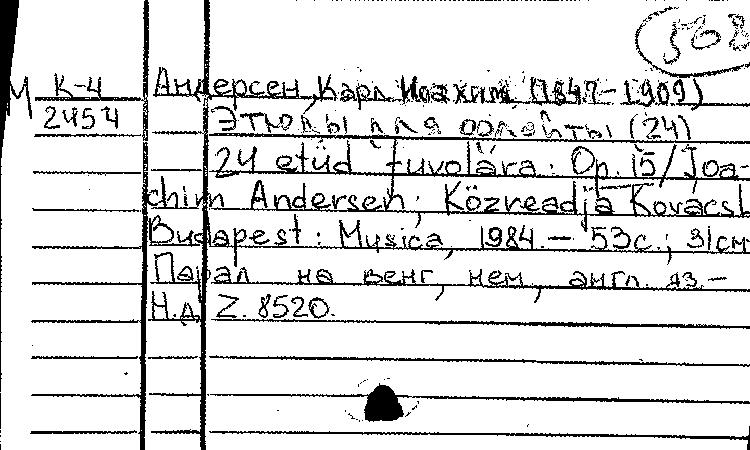 568
М К-4 Андерсен, Карл Иоахим (1847-1909)
2454 Этюды для флейты (24)
24 etüd fuvolára. Op. 15 / Joa-
chim Andersen; Közreadja Kovács L
Budapest: Musica, 1984. - 53с.; 31см
Парал. на венг, нем., англ. яз. -
Н.д. Z. 8520.